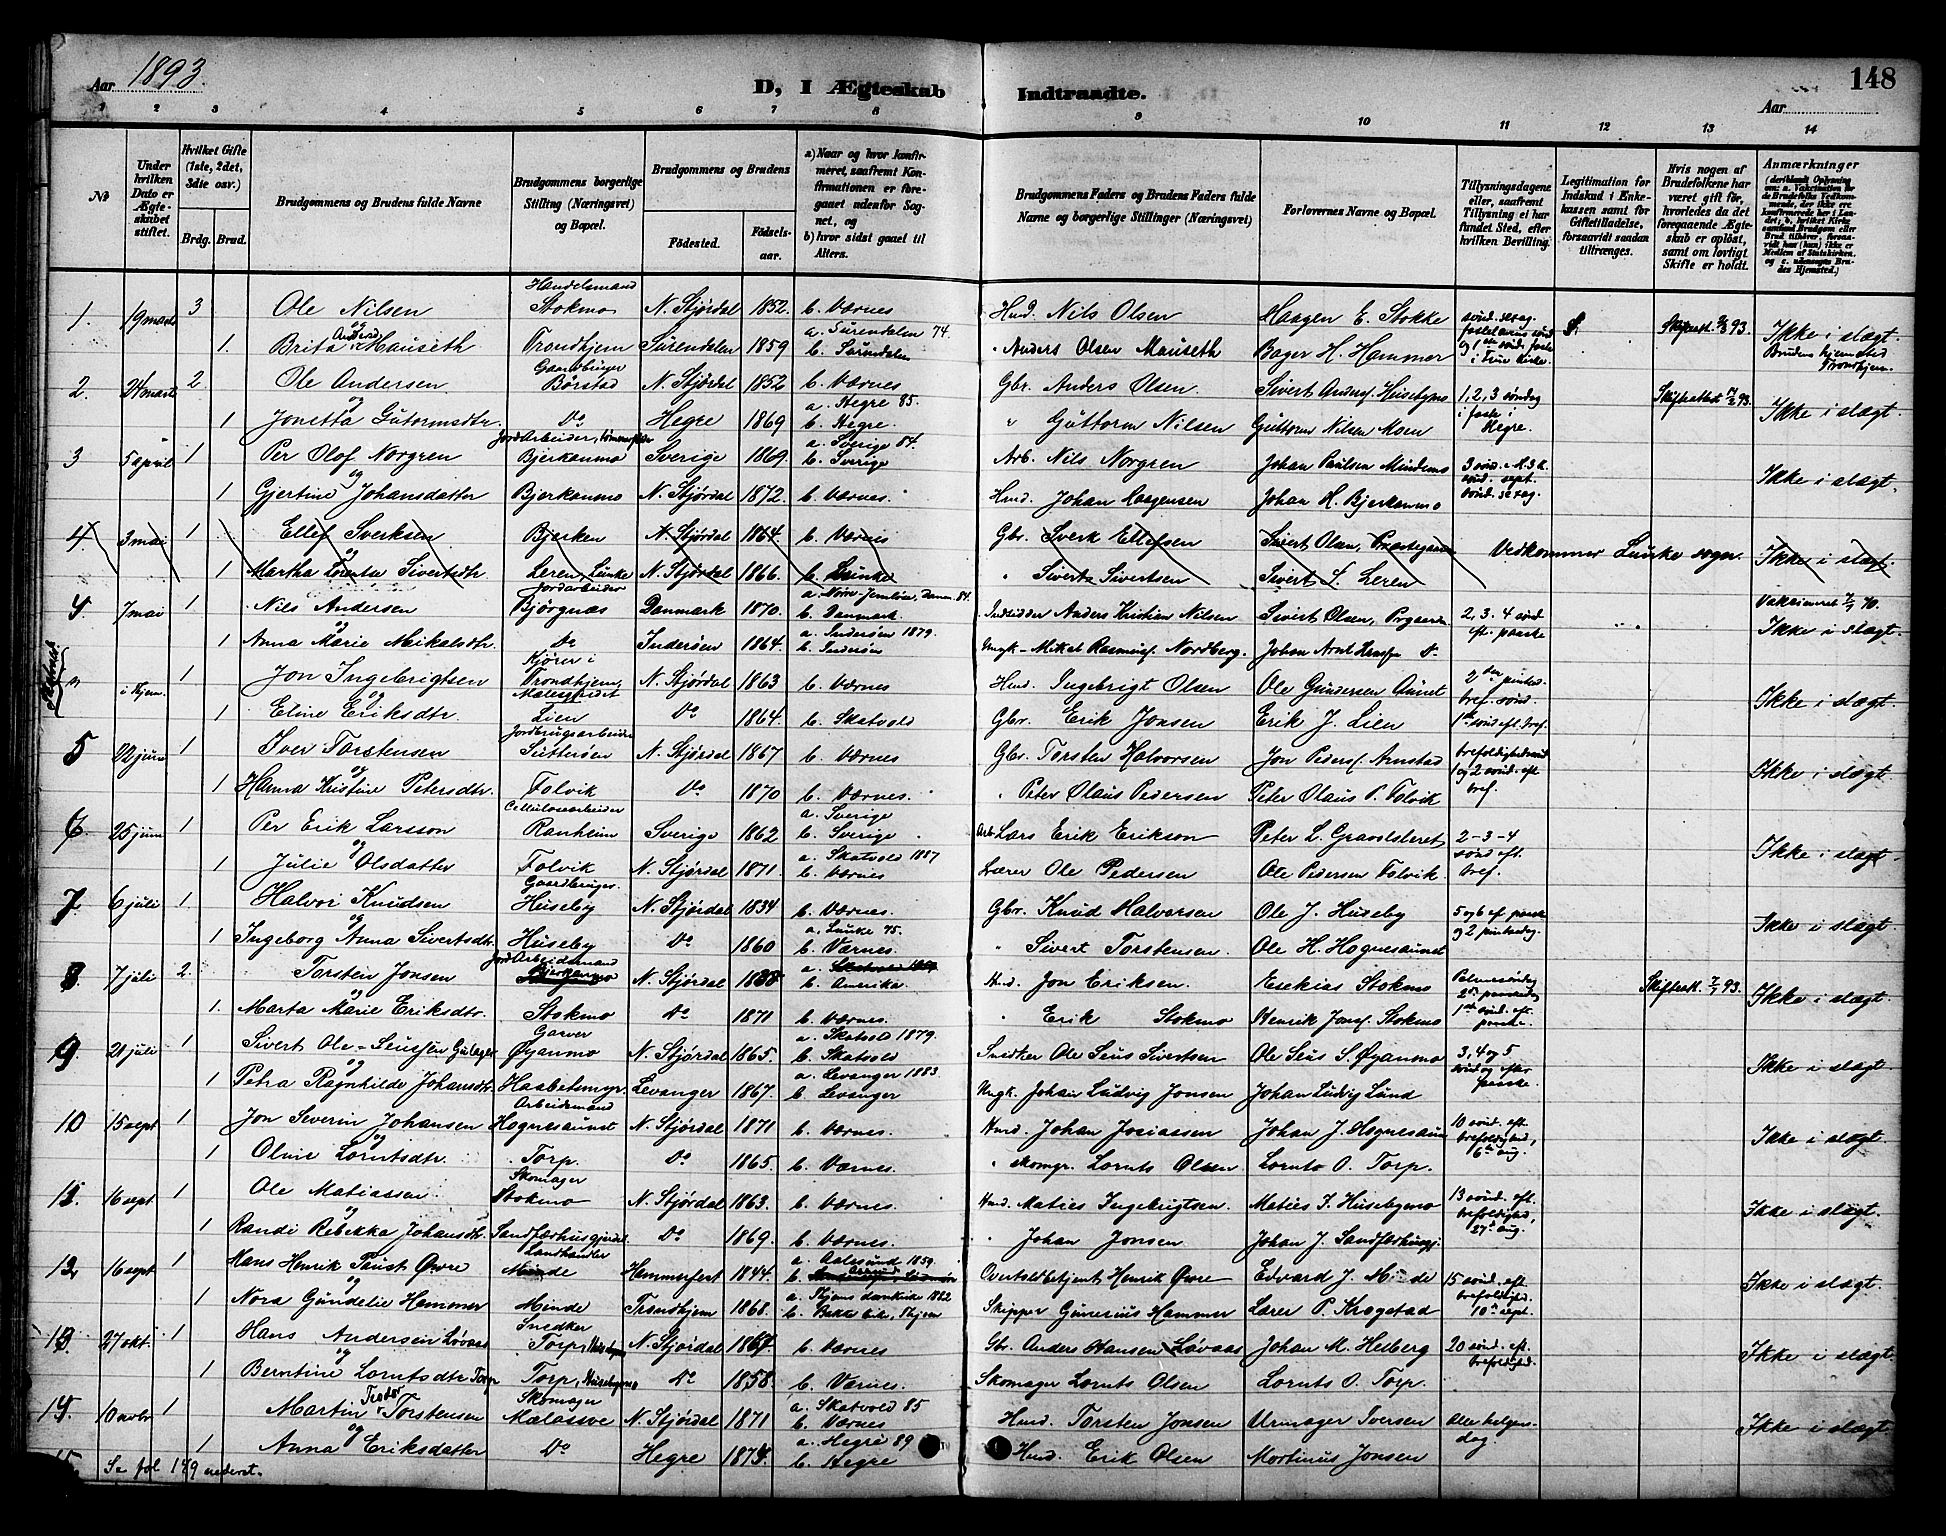 Aar 1893. D, I Ægteskab Indtraadte. Aar 148
1 2 3 4 5 6 7 8 9 10 11 12 13 14
No
Under hvilken Dato er Ægteskabet stiftet.
Hvilket Gifte (1ste, 2det, 3die osv.)
Brdg. Brud.
Brudgommens og Brudens fulde Navne
Brudgommens borgerlige Stilling (Næringsvei) og Bopæl.
Brudgommens og Brudens
Fødested. Fødselsaar.
a) Naar og hvor konfirmeret, saafremt Konfirmationen er foregaaet udenfor Sognet, og
b) hvor sidst gaaet til Alters.
Brudgommens Faders og Brudens Faders fulde Navne og borgerlige Stillinger (Næringsvei)
Forlovernes Navne og Bopæl.
Tillysningsdagene eller, saafremt Tillysning ei har fundet Sted, efter hvilken Bevilling.
Legitimation for Indskud i Enkekassen samt for Giftetilladelse, forsaavidt saadan tiltrænges.
Hvis nogen af Brudefolkene har været gift før, hvorledes da det foregaaende Ægteskab er opløst, samt om lovligt Skifte er holdt.
Anmærkninger
1. 19 marts 3 Ole Nilsen Handelsmand Stokmo N. Stjørdal 1852. b. Værnes Hmd. Nils Olsen Haagen E. Stokke Skifteatt. 93. Ikke i slægt.
og
1. Brita Andersd. Mauseth Trondhjem Surendalen 1859 a. Surendalen 74. b. Surendalen " Anders Olsen Mauseth Bager H. Hammer Brudens hjemsted Trondhjem.
2. 24 marts 2 Ole Andersen Gaardbruger Børstad N. Stjørdal 1852 b. Værnes Gbr. Anders Olsen Sivert Anders. Husebymo 1, 2, 3 søndag i faste i Hegre. Skifteattest 93. Ikke i slægt.
og
1 Jonetta Gutormsdtr. Do Hegre 1869 a. Hegre 85. b. Hegre. " Guttorm Nilsen Guttorm Nilsen Moen
3 5 april 1 Per Olof Norgren Bjerkanmo Sverige 1869. a. Sverige 84. b. Sverige Arb. Nils Norgren Johan Paulsen Mindemo Ikke i slægt.
og
1 Gjertine Johansdatter Bjerkanmo N. Stjørdal 1872. b. Værnes Hmd. Johan Haagensen Johan H. Bjerkanmo
4 3 mai 1 Ellef Sverksen Bjerken N. Stjørdal 1864. b. Værnes Gbr. Sverk Ellefsen Sivert Olsen, Præstegaarden Vedkommer Lunke sogn. Ikke i slægt.
og
1 Martha Lorentse Sivertsdtr Leren, Lunke N. Stjørdal 1866. b. Lunke " Sivert Sivertsen Sivert S. Leren
4 7 mai 1 Nils Andersen Jordarbeider Bjørgnæs Danmark 1870. b. Danmark. Inderst Anders Kristian Nilsen Sivert Olsen, Prgaarden 2, 3. 4 sønd. eft. paaske Vaksineret 70. Ikke i slægt.
og
1 Anna Marie Mikalsdtr. Do Inderøen 1864. a. Inderøen 1879. b. Inderøen Ungk. Mikal Rasmus. Nordberg. Johan Arnt Hansen Do
i Thjem. 1 Jon Ingebrigtsen Kjører i Trondhjem, N. Stjørdal 1863 b. Værnes Hmd. Ingebrigt Olsen Ole Gundersen Aunet Ikke i slægt.
og
1 Eline Eriksdtr. Lien Do 1864. b. Skatvold Gbr. Erik Jonsen Erik J. Lien
5 22 juni 1 Iver Torstensen Jordbrugsarbeider Sutterøen N. Stjørdal 1867 b. Værnes Gbr. Torsten Halvorsen Jon Peders. Arnstad trefoldighedssønd. 1 og 2 sønd. eft. tref. Ikke i slægt.
og
1 Hanna Kristine Petersdtr. Folvik Do 1870 b. Værnes. " Peter Olaus Pedersen Peter Olaus P. Folvik
6. 25 juni 1 Per Erik Larsson Cellulosearbeider Ranheim Sverige 1862 a. Sverige b. Sverige Arb. Lars Erik Erikson Peter L. Gravdsleret 2-3-4 sønd eft. tref. Ikke i slægt
og
1 Julie Olsdatter Folvik N. Stjørdal 1871 a. Skatvold 1887 b. Værnes Lærer Ole Pedersen Ole Pedersen Folvik.
7. 6 juli 1. Halvor Knudsen Gaardbruger. Huseby N. Stjørdal 1834 b. Værnes. Gbr. Knud Halvorsen Ole J. Huseby Ikke i slægt.
og
1 Ingeborg Anna Sivertsdtr. Huseby Do 1860 a. Lunke 75. b. Værnes. " Sivert Torstensen Ole H. Hognesaunet
8. 7 juli 2. Torsten Jonsen Arbeidsmand Bjerkanmo N. Stjørdal b. Amerika. Hmd. Jon Eriksen. Esekias Stokmo Skifteatt. 93. Ikke i slægt.
og
1. Marta Marie Eriksdtr. Stokmo Do 1871 b. Værnes. " Erik Stokmo Henrik Jons. Stokmo
9. 21 juli 1 Sivert Ole-Seusen Gulager Garver Øyanmo N. Stjørdal 1865. a. Skatvold 1879. b. Skatvold Snedker Ole Seus Sivertsen Ole Seus S. Øyanmo 3, 4 og 5 sønd og efter paaske Ikke i slægt.
og
1 Petra Ragnhilde Johansdtr. Haabetsmyr Levanger 1867. a. Levanger 1883. b. Levanger Ungk. Johan Ludvig Jonsen Johan Ludvig Lund
10 15 sept 1 Jon Severin Johansen Arbeidsmand Hognesaunet N. Stjørdal 1871 b. Værnes. Hmd. Johan Josiassen Johan J. Hognesaun 10 sønd. eft. trefoldighed, 16de aug. Ikke i slægt.
og
1 Oline Lorntsdtr. Torp. Do 1865. b. Værnes. " Skomgr. Lornts Olsen Lornts O. Torp.
16 sept 1 Ole Matiassen Skomager Stokmo N. Stjørdal 1863. b. Værnes. Hmd. Matias Ingebrigtsen. Matias I. Husebymo 13 sønd. eft. trefoldighed, 27de aug. Ikke i slægt.
og
1 Randi Rebekka Johansdtr. Do 1869. b. Værnes. " Johan Jonsen Johan J.
12. 16 sept 1 Hans Henrik Faust Øvre Landhandler Minde Hammerfest 1844. a. Aalesund 1859. Overtoldbetjent Henrik Øvre Edvard J. Minde 15 sønd. eft. trefoldighed. 10de sept. Ikke i slægt.
og
1 Nora Gundelie Hammer Minde Trondhjem 1868. a. Thjems domkirke 1882 b. Bakke kirke, Thjem Skipper Gunerius Hammer Lærer P. Krogstad
13. 27 okt. 1 Hans Andersen Løvaas Snedker Torp, N. Stjørdal b. Værnes Gbr. Anders Hansen Løvaas Johan M. Helberg 20 sønd. eft. trefoldighed. Ikke i slægt.
og
1 Berntine Lorntsdtr Torp Torp, Husebymo Do 1858. b. Værnes. Skomager Lornts Olsen Lornts O. Torp.
10 novbr 1 Martin Teodor Torstensen Skomager Mælassve N. Stjørdal 1871 a. Skatvold 85 b. Værnes Hmd. Torsten Jonsen Urmager Iversen Alle helgensdag. Ikke i slægt.
og
1 Anna Eriksdatter Do Hegre a. Hegre 89 b. Hegre Hmd. Erik Olsen Mortinus Jonsen
15. Se fol 149 nederst.